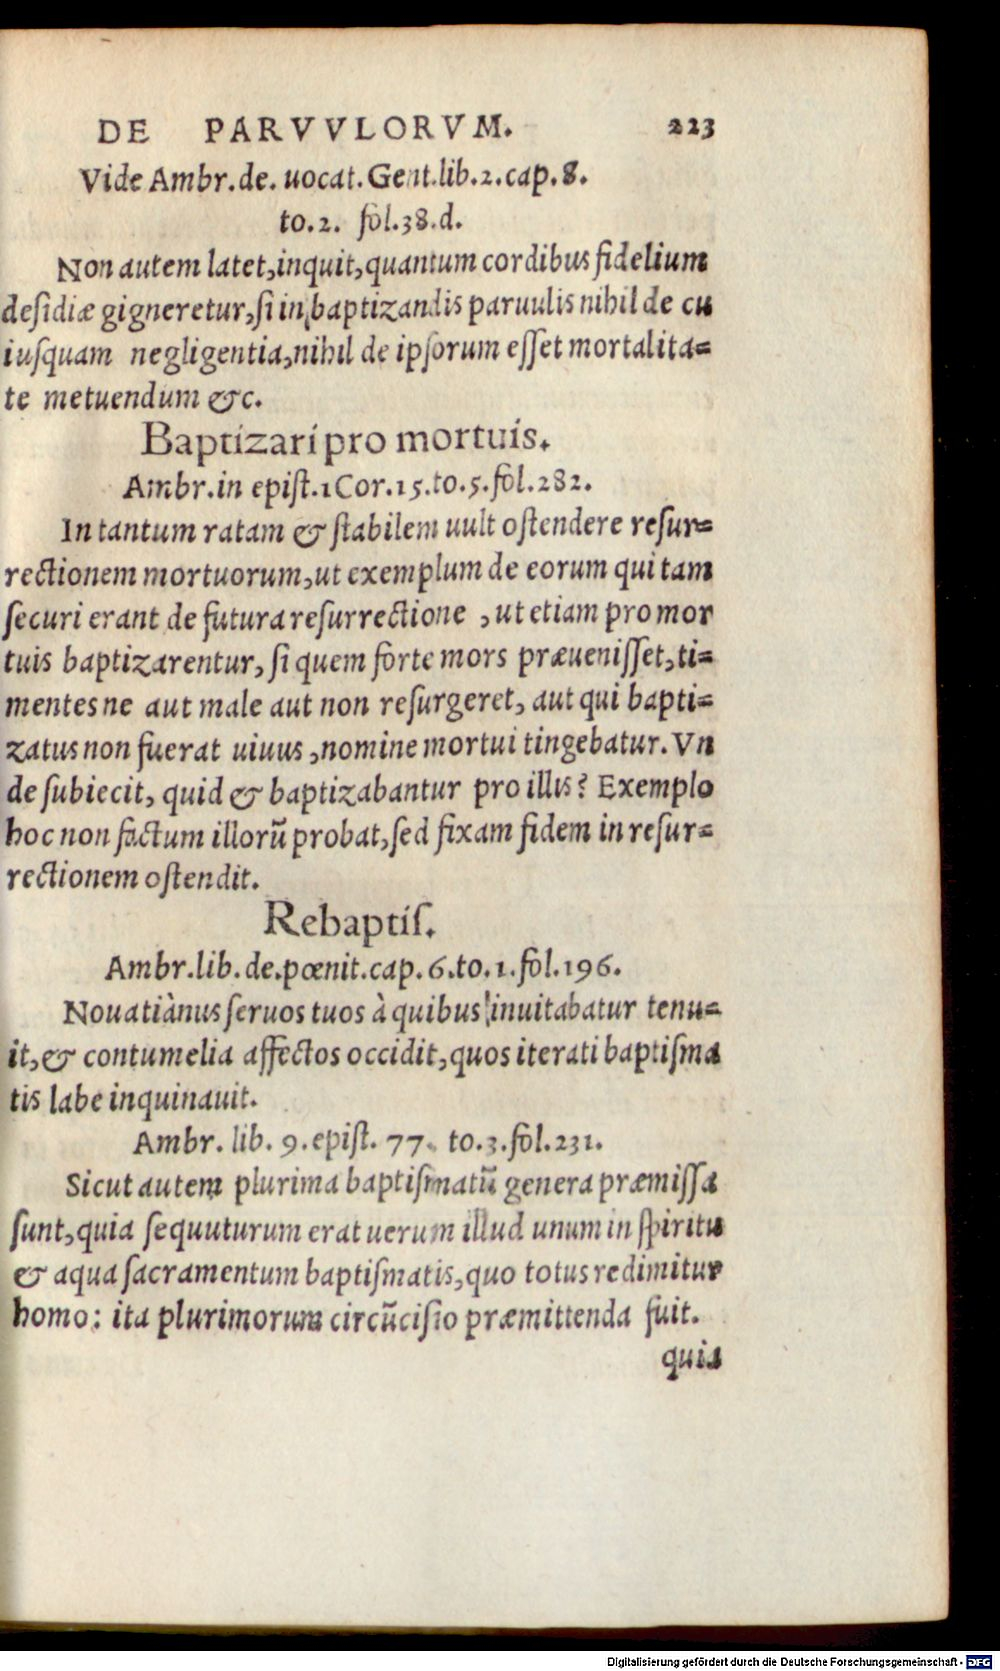 DE PARVVLORVM. 223
Vide Ambr.de. uocat.Gent.lib.2.cap.8.
to.2. fol.38.d.
Non autem latet,inquit,quantum cordibus fidelium
desidiæ gigneretur,si in baptizandis paruulis nihil de cu
iusquam negligentia,nihil de ipsorum esset mortalita=
te metuendum &c.
Baptizari pro mortuis.
Ambr.in epist.1Cor.15.to.5.fol.282.
In tantum ratam & stabilem uult ostendere resur=
rectionem mortuorum,ut exemplum de eorum qui tam
securi erant de futura resurrectione ,ut etiam pro mor
tuis baptizarentur, si quem forte mors præuenisset,ti=
mentes ne aut male aut non resurgeret, aut qui bapti=
zatus non fuerat uiuus ,nomine mortui tingebatur.Vn
de subiecit, quid & baptizabantur pro illis? Exemplo
hoc non factum illorũ probat,sed fixam fidem in resur=
rectionem ostendit.
Rebaptis.
Ambr.lib.de.pœnit.cap.6.to.1.fol.196.
Nouatiànus seruos tuos à quibus inuitabatur tenu=
it,& contumelia affectos occidit,quos iterati baptisma
tis labe inquinauit.
Ambr. lib. 9.epist. 77. to.3.fol.231.
Sicut autem plurima baptismatũ genera præmissa
sunt,quia sequuturum erat uerum illud unum in spiritu
& aqua sacramentum baptismatis,quo totus redimitur
homo: ita plurimorum circũcisio præmittenda fuit.
quia
Digitalisierung gefördert durch die Deutsche Forschungsgemeinschaft - DFG